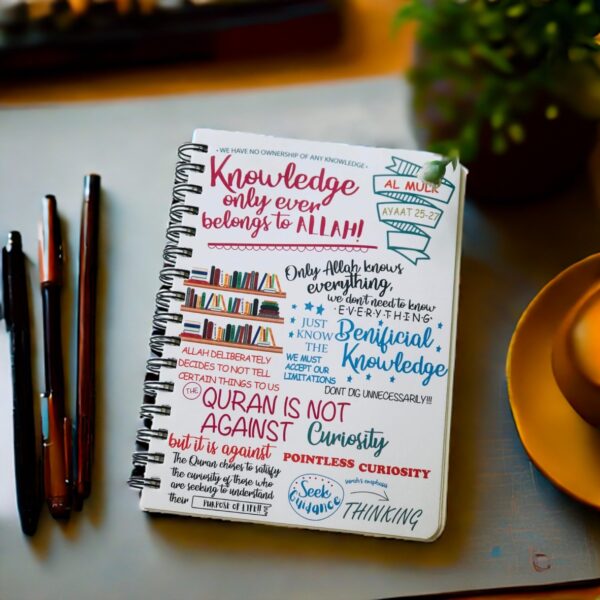 • WE HAVE NO OWNERSHIP OF ANY KNOWLEDGE •
Knowledge
only ever
belongs to ALLAH!
AL MULK
AYAAT 25-27
Only Allah knows
everything,
we don't need to know
• E•V•E•R•Y•T•H•I•N•G
JUST
KNOW
THE
Benificial
Knowledge
ALLAH DELIBERATELY
DECIDES TO NOT TELL
CERTAIN THINGS TO US
WE MUST
ACCEPT OUR
LIMITATIONS
DONT DIG UNNECESSARILY!!!
THE QURAN IS NOT
AGAINST Curiosity
but it is against POINTLESS CURIOSITY
The Quran choses to satisfy
the curiosity of those who
are seeking to understand
their PURPOSE OF LIFE!!
Seek
Guidance
surah's emphasis
THINKING